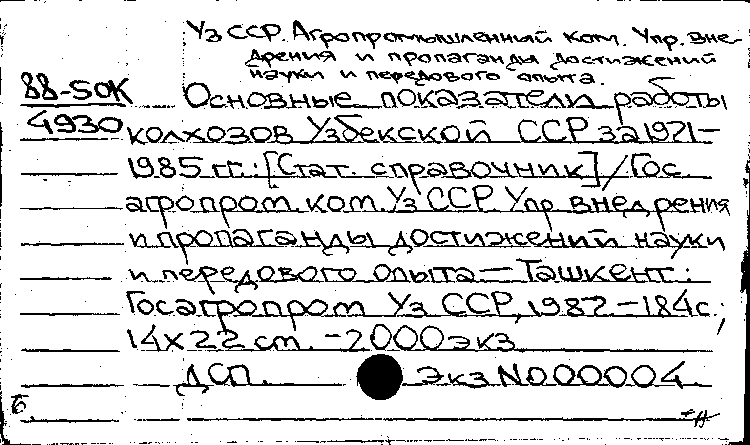 Уз ССР. Агропромышленный ком. Упр. вне-
дрения и пропаганды достижений
науки и передового опыта.
88-50К
4930
Основные показатели работы
колхозов Узбекской ССР за 1971-
1985 гг.: [Стат. справочник] / Гос.
агропром. ком. Уз ССР Упр. внедрения
и пропаганды достижений науки
и передового опыта – Ташкент:
Госагропром Уз ССР, 1987 – 184 с.;
14х22 cm. – 2000 экз.
ДСП. Экз N000004.
б.